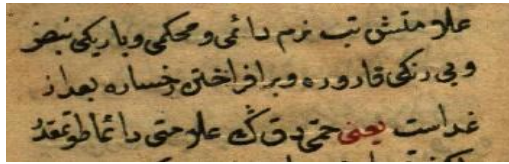 علامتش تب نرم دائمی و محکمی و باریکی نبض
و بی رنگی قاروره و برافراختن رخساره بعد از
غداست یعنی حمی دق که علامتی دائما